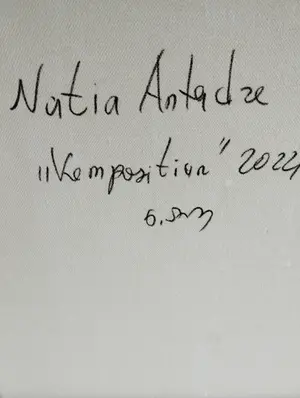 Natia Antadze
„Komposition" 2024